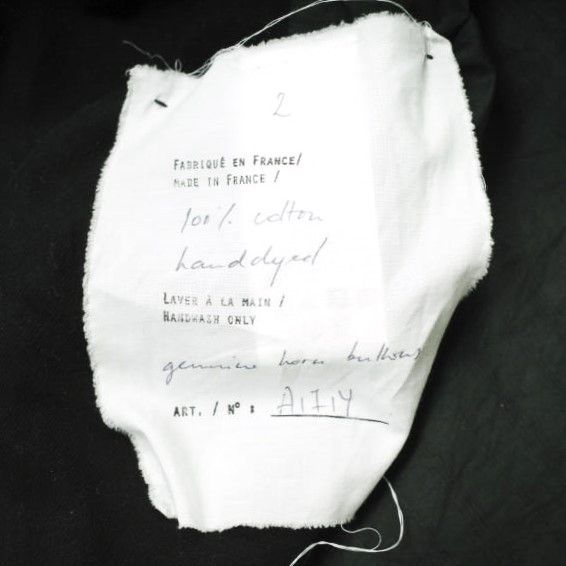 2
FABRIQUÉ EN FRANCE/
MADE IN FRANCE /
100% cotton
handdyed
LAVER À LA MAIN /
HANDWASH ONLY
genuine horn buttons
ART. / N° : A1714